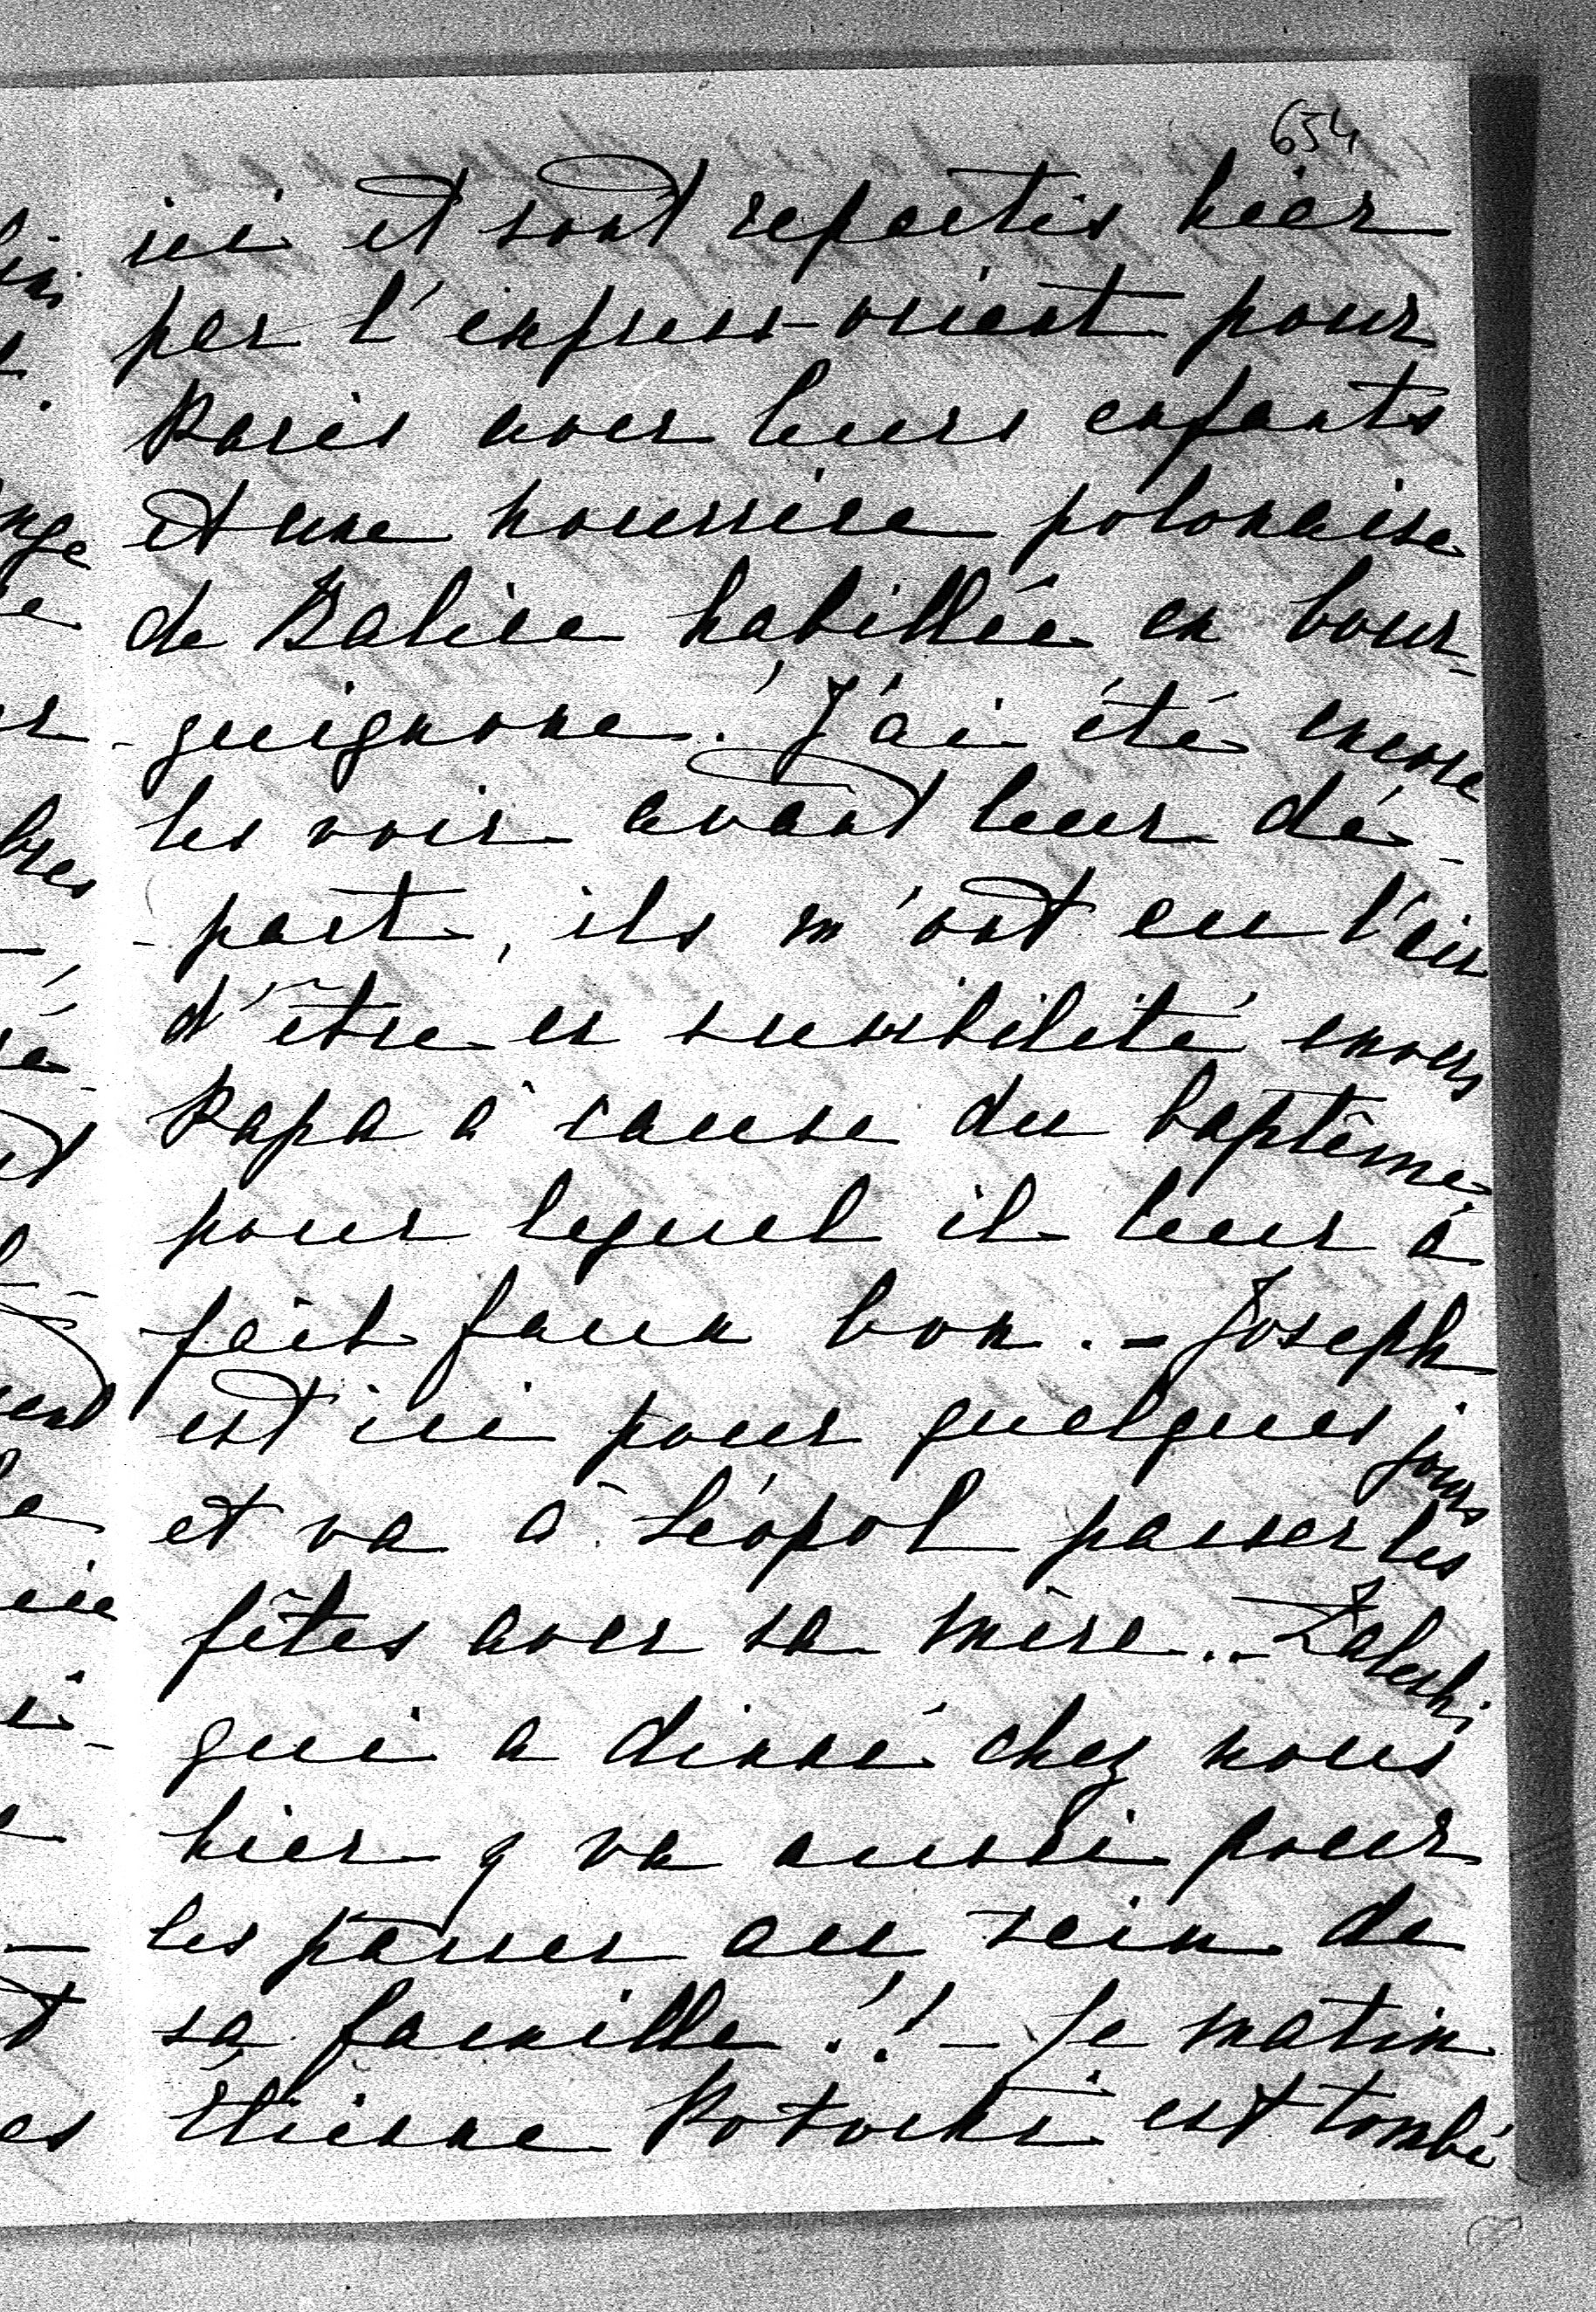 654
ici et sont repartis hier
par l'express-orient pour
Paris avec leurs enfants
et une nourrice polonaise
de Galice habillée en bour-
-guignone! J'ai été encore
les voir avant leur dé-
-part, ils m'ont eu l'air
d'être en susibilité envers
Papa à cause du baptême
pour lequel il leur à
fait faux bon. - Joseph
est ici pour quelques jours
et va à Léopol passer les
fêtes avec sa mère. - Zaleski
qui a dinné chez nous
hier y va aussi pour
les passer au sein de
sa famille!! - Ce matin
Étienne Potocki est tombé